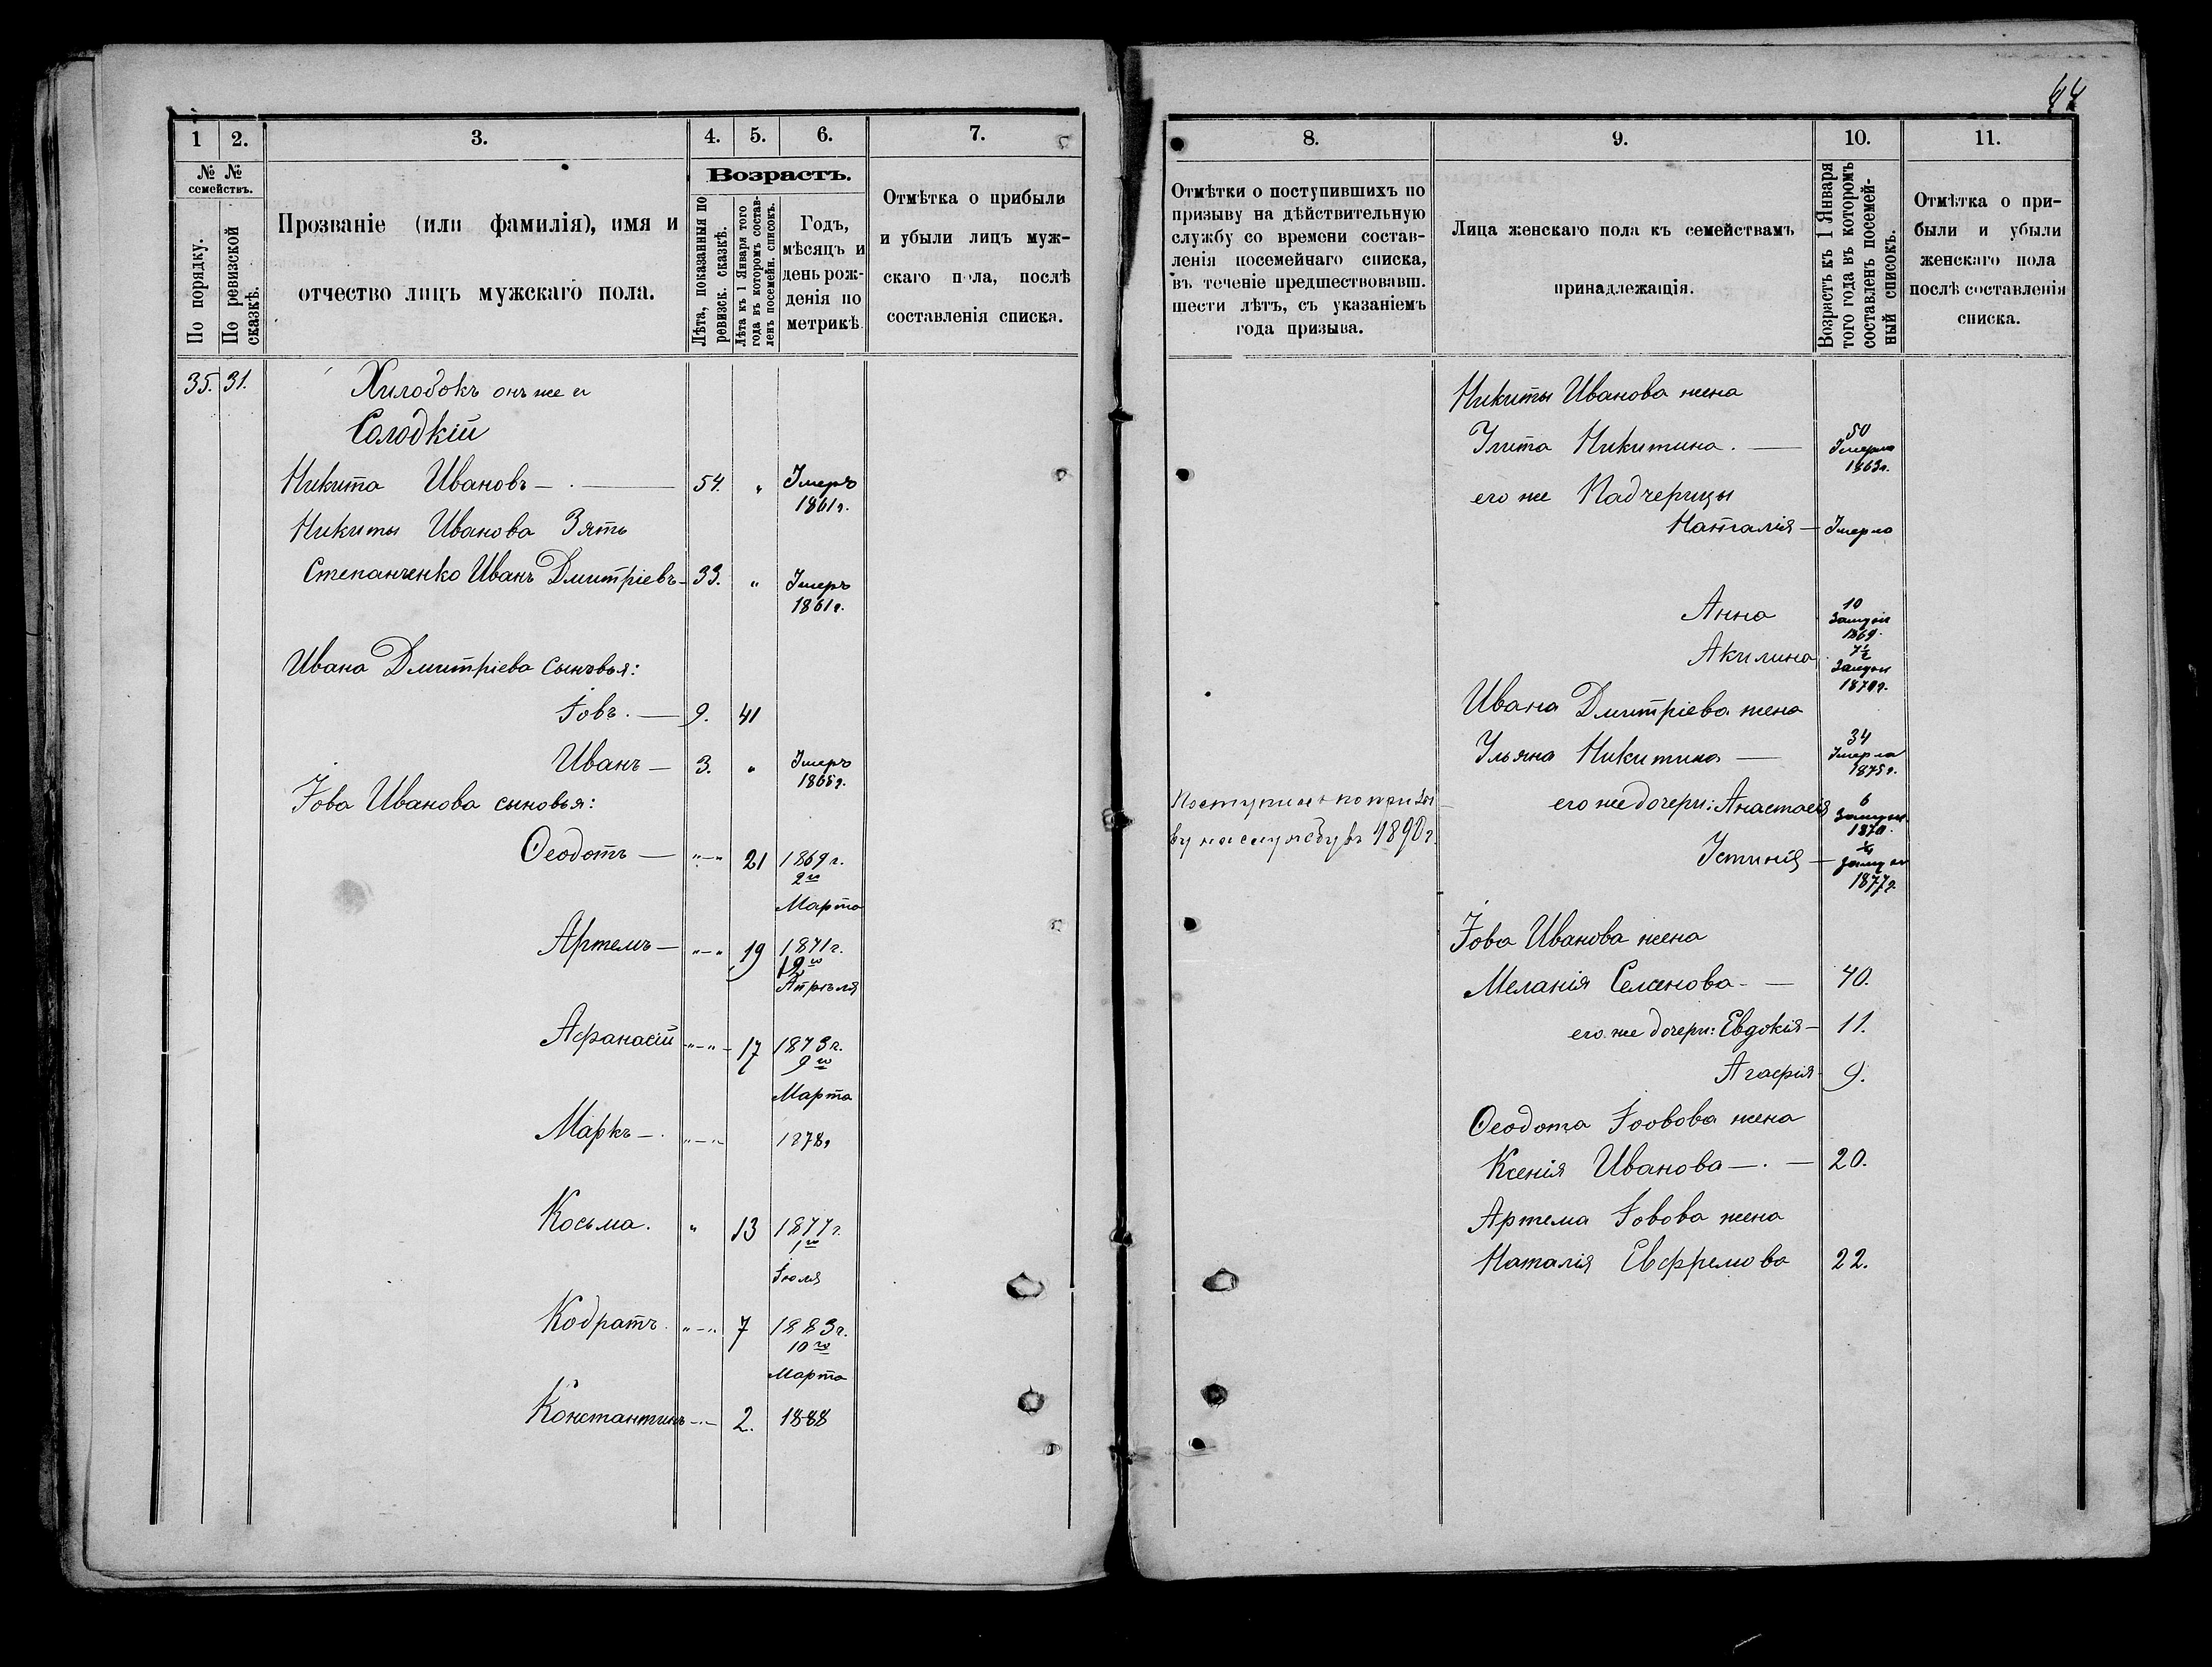 44
1 2. 3. 4. 5. 6. 7.
№ № семействъ.
По порядку.
По ревизской сказкѣ.
Прозваніе (или фамилія), имя и
отчество лицъ мужскаго пола.
Возрастъ.
Лѣта, показанныя по ревизск. сказкѣ.
Лѣта къ 1 Января того года въ которомъ составленъ посемейн. списокъ.
Годъ,
мѣсяцъ и
день рож-
денія по
метрикѣ
Отмѣтка о прибыли
и убыли лицъ муж-
скаго пола, послѣ
составленія списка.
35. 31. Хилобокъ онъ же и
Солодкій
Никита Ивановъ — 54. " Умеръ
1861 г.
Никиты Иванова Зять
Степанченко Иванъ Дмитріевъ — 33. " Умеръ
1861 г.
Ивана Дмитріева сыновья:
Іовъ. — 9. 41
Иванъ — 3. " Умеръ
1865 г.
Іова Иванова сыновья:
Ѳеодотъ — "—" 21 1869 г.
2го
Марта
Артемъ — "—" 19 1871 г.
Апрѣля
Афанасій "—" 17 1873 г.
9го
Марта
Маркъ — "—" 1878 г
Косьма. " 13 1877 г.
1го
Іюля
Кодратъ "—" 7 1883 г.
10го
Марта
Константинъ — 2. 1888
8. 9. 10. 11.
Отмѣтки о поступившихъ по
призыву на дѣйствительную
службу со времени состав-
ленія посемейнаго списка,
въ теченіе предшествовавш.
шести лѣтъ, съ указаніемъ
года призыва.
Лица женскаго пола къ семействамъ
принадлежащія.
Возрастъ къ 1 Января
того года въ которомъ
составленъ посемей-
ный списокъ.
Отмѣтка о при-
были и убыли
женскаго пола
послѣ составленія
списка.
Никиты Иванова жена
Улита Никитина. — 50
Умерла
1863 г.
его же Падчерицы
Наталія — Умерла
Анна 10
Замужи
1869.
Акилина 7½
Замужи
1870 г.
Ивана Дмитріева жена
Ульяна Никитина — 34
Умерла
1875 г.
его же дочери: Анастасія 6
Замужи
1870.
Устинія — Замужи
1877 г.
Поступилъ по призы
ву на службу въ 1890 г.
Іова Иванова жена
Меланія Семенова — 40.
его же дочери: Евдокія — 11.
Агафія 9.
Ѳеодота Іовова жена
Ксенія Иванова — 20.
Артема Іовова жена
Наталія Евфремова 22.